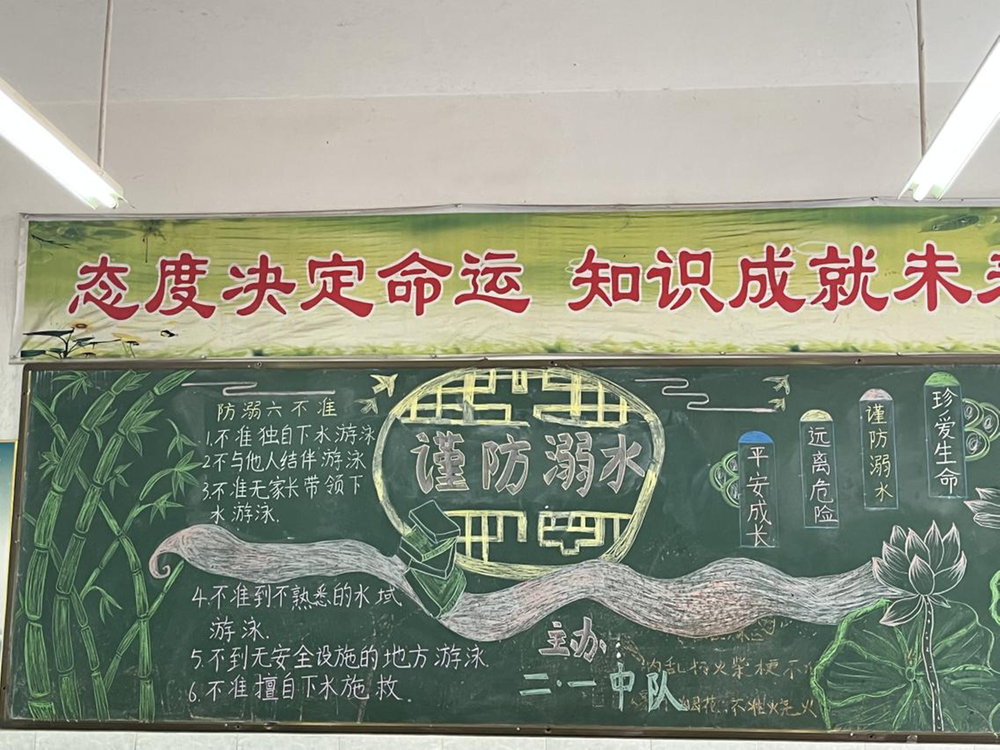 态度决定命运 知识成就未
防溺六不准
1.不准独自下水游泳
2不与他人结伴游泳
3.不准无家长带领下
水游泳.
谨防溺水
平安成长
远离危险
谨防溺水
珍爱生命
4.不准到不熟悉的水域
游泳.
5.不到无安全设施的地方游泳
6.不准擅自下水施救.
主办:
二·一中队